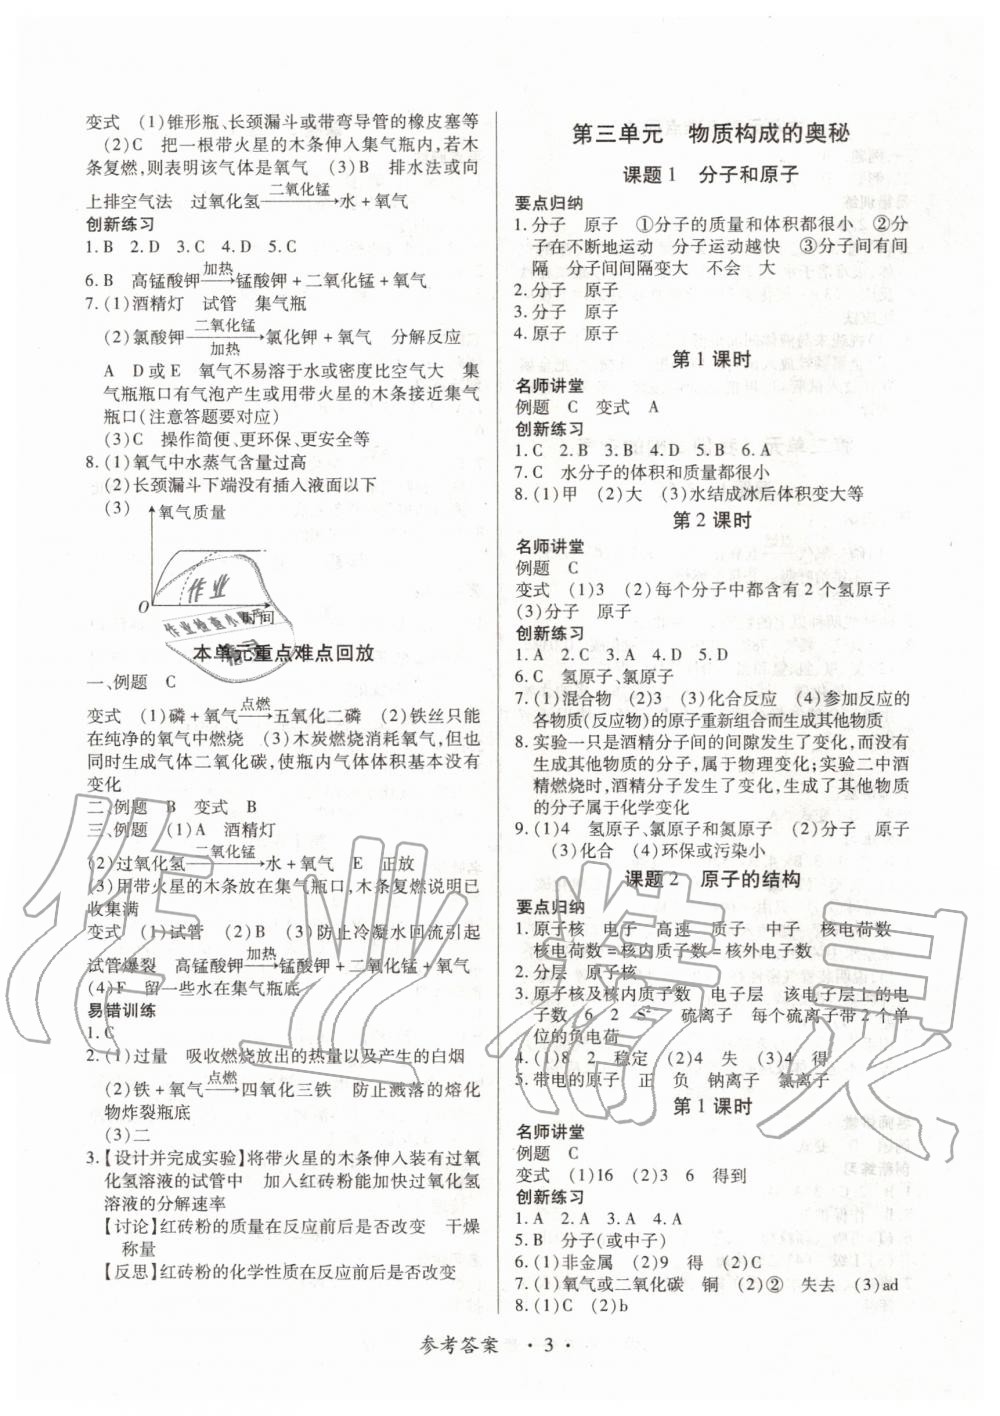 变式　(1)锥形瓶、长颈漏斗或带弯导管的橡皮塞等
(2)C　把一根带火星的木条伸入集气瓶内,若木
条复燃,则表明该气体是氧气　(3)B　排水法或向
上排空气法　过氧化氢 二氧化锰→ 水+氧气
创新练习
1. B　2. D　3. C　4. D　5. C
6. B　高锰酸钾 加热→ 锰酸钾+二氧化锰+氧气
7. (1)酒精灯　试管　集气瓶
(2)氯酸钾 二氧化锰/加热→ 氯化钾+氧气　分解反应
A　D或E　氧气不易溶于水或密度比空气大　集
气瓶瓶口有气泡产生或用带火星的木条接近集气
瓶口(注意答题要对应)
(3)C　操作简便、更环保、更安全等
8. (1)氧气中水蒸气含量过高
(2)长颈漏斗下端没有插入液面以下
(3)
氧气质量
O
时间
本单元重点难点回放
一、例题　C
变式　(1)磷+氧气 点燃→ 五氧化二磷　(2)铁丝只能
在纯净的氧气中燃烧　(3)木炭燃烧消耗氧气,但也
同时生成气体二氧化碳,使瓶内气体体积基本没有
变化
二、例题　B　变式　B
三、例题　(1)A　酒精灯
(2)过氧化氢 二氧化锰→ 水+氧气　E　正放
(3)用带火星的木条放在集气瓶口,木条复燃说明已
收集满
变式　(1)试管　(2)B　(3)防止冷凝水回流引起
试管爆裂　高锰酸钾 加热→ 锰酸钾+二氧化锰+氧气
(4)F　留一些水在集气瓶底
易错训练
1. C
2. (1)过量　吸收燃烧放出的热量以及产生的白烟
(2)铁+氧气 点燃→ 四氧化三铁　防止溅落的熔化
物炸裂瓶底
(3)二
3. 【设计并完成实验】将带火星的木条伸入装有过氧
化氢溶液的试管中　加入红砖粉能加快过氧化氢
溶液的分解速率
【讨论】红砖粉的质量在反应前后是否改变　干燥
称量
【反思】红砖粉的化学性质在反应前后是否改变
第三单元　物质构成的奥秘
课题1　分子和原子
要点归纳
1. 分子　原子　①分子的质量和体积都很小　②分
子在不断地运动　分子运动越快　③分子间有间
隔　分子间间隔变大　不会　大
2. 分子　原子
3. 分子　原子
4. 原子　原子
第1课时
名师讲堂
例题　C　变式　A
创新练习
1. C　2. B　3. B　4. D　5. B　6. A
7. C　水分子的体积和质量都很小
8. (1)甲　(2)大　(3)水结成冰后体积变大等
第2课时
名师讲堂
例题　C
变式　(1)3　(2)每个分子中都含有2个氢原子
(3)分子　原子
创新练习
1. A　2. C　3. A　4. D　5. D
6. C　氢原子、氯原子
7. (1)混合物　(2)3　(3)化合反应　(4)参加反应的
各物质(反应物)的原子重新组合而生成其他物质
8. 实验一只是酒精分子间的间隙发生了变化,而没有
生成其他物质的分子,属于物理变化;实验二中酒
精燃烧时,酒精分子发生了变化,生成了其他物质
的分子属于化学变化
9. (1)4　氢原子、氯原子和氮原子　(2)分子　原子
(3)化合　(4)环保或污染小
课题2　原子的结构
要点归纳
1. 原子核　电子　高速　质子　中子　核电荷数
核电荷数=核内质子数=核外电子数
2. 分层　原子核
3. 原子核及核内质子数　电子层　该电子层上的电
子数　6　2　S²⁻　硫离子　每个硫离子带2个单
位的负电荷
4. (1)8　2　稳定　(2)4　失　(3)4　得
5. 带电的原子　正　负　钠离子　氯离子
第1课时
名师讲堂
例题　C
变式　(1)16　(2)3　6　得到
创新练习
1. A　2. A　3. A　4. A
5. B　分子(或中子)
6. (1)非金属　(2)9　得　(2)C
7. (1)氧气或二氧化碳　铜　(2)②　失去　(3)ad
8. (1)C　(2)b
参考答案 · 3 ·
作业精灵
作业
作业检查小助手